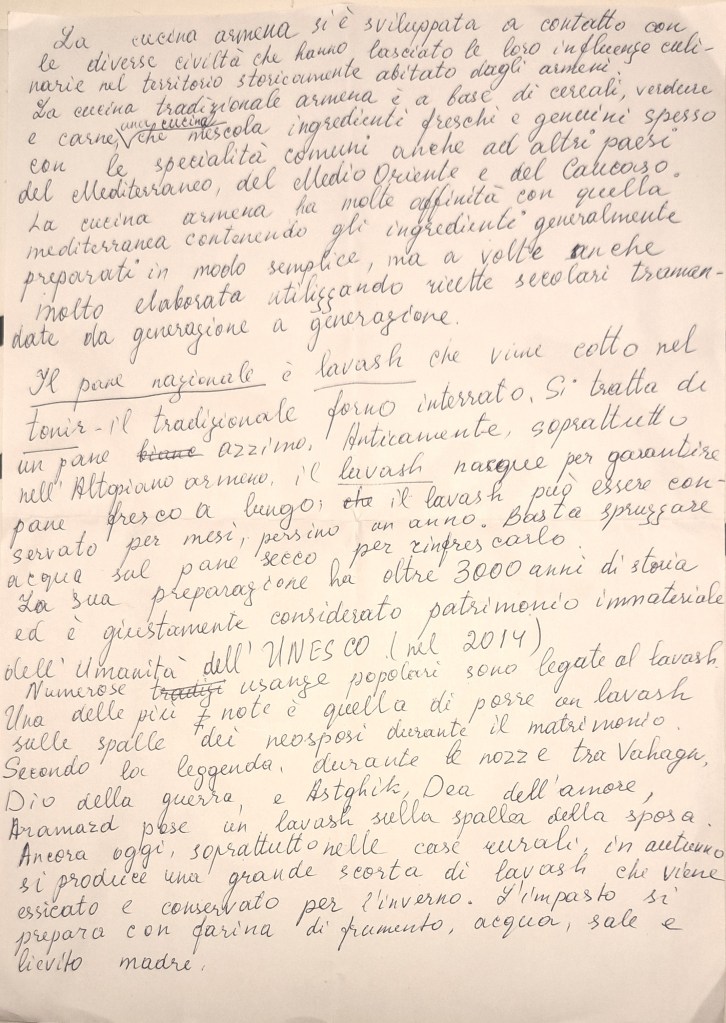 La cucina armena si è sviluppata a contatto con
le diverse civiltà che hanno lasciato le loro influenze culi-
narie nel territorio storicamente abitato dagli armeni.
La cucina tradizionale armena è a base di cereali, verdure
e carne, una cucina che mescola ingredienti freschi e genuini spesso
con le specialità comuni anche ad altri paesi
del Mediterraneo, del Medio Oriente e del Caucaso.
La cucina armena ha molte affinità con quella
mediterranea contenendo gli ingredienti generalmente
preparati in modo semplice, ma a volte anche
molto elaborata utilizzando ricette secolari traman-
date da generazione a generazione.
Il pane nazionale è lavash che viene cotto nel
tonir - il tradizionale forno interrato. Si tratta di
un pane biano azzimo. Anticamente, soprattutto
nell'Altopiano armeno, il lavash nacque per garantire
pane fresco a lungo; che il lavash può essere con-
servato per mesi, persino un anno. Basta spruzzare
acqua sul pane secco per rinfrescarlo.
La sua preparazione ha oltre 3000 anni di storia
ed è giustamente considerato patrimonio immateriale
dell'Umanità dell'UNESCO (nel 2014)
Numerose tradizi usanze popolari sono legate al lavash.
Una delle più note è quella di porre un lavash
sulle spalle dei neosposi durante il matrimonio.
Secondo la leggenda, durante le nozze tra Vahagn,
Dio della guerra, e Astghik, Dea dell'amore,
Aramazd pose un lavash sulla spalla della sposa.
Ancora oggi, soprattutto nelle case rurali, in autunno
si produce una grande scorta di lavash che viene
essicato e conservato per l'inverno. L'impasto si
prepara con farina di frumento, acqua, sale e
lievito madre.